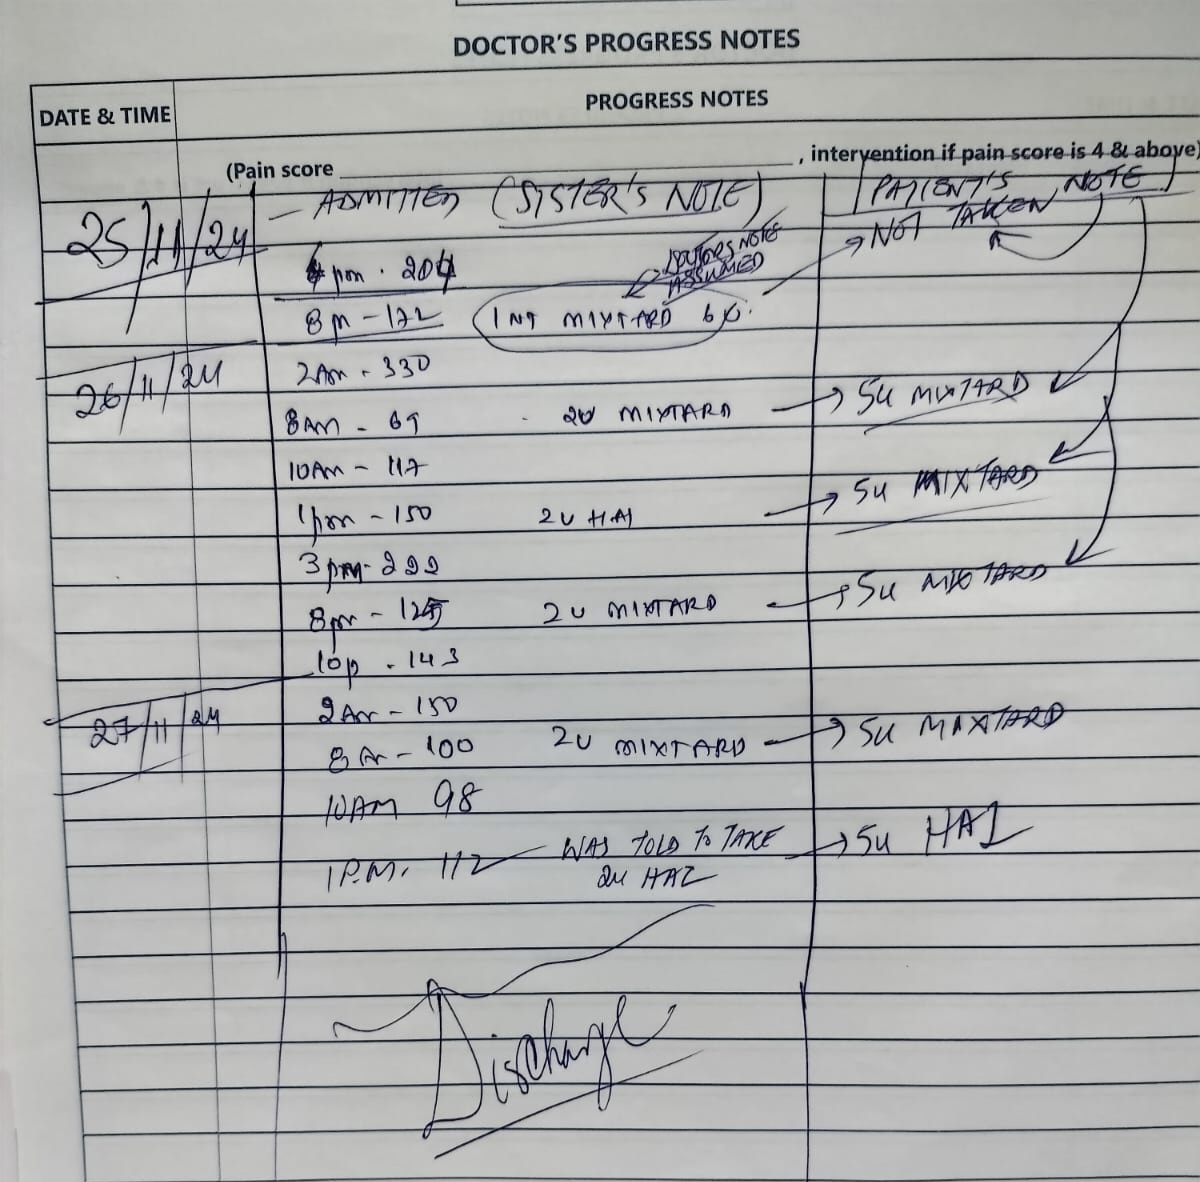 DOCTOR'S PROGRESS NOTES
DATE & TIME
PROGRESS NOTES
(Pain score , intervention if pain score is 4 & above)
25/11/24 - ADMITTED (SISTER'S NOTE) PATIENT'S NOTE
NOT TAKEN
DOCTORS NOTE
ASSUMED
pm . 204
8 pm - 122 INJ MIXTARD 6U.
26/11/24 2AM - 330
8AM - 69 2U MIXTARD → 5U MIXTARD
10AM - 117
1pm - 150 2U HAI → 5U MIXTARD
3pm - 222
8pm - 125 2U MIXTARD → 5U MIXTARD
10p - 143
27/11/24 2AM - 150
8AM - 100 2U MIXTARD → 5U MIXTARD
10AM 98
1P.M. 112 WAS TOLD TO TAKE → 5U HAI
2U HAI
Discharge